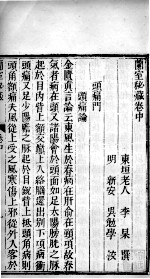 蘭室秘藏卷中
東垣老人 李杲 撰
明 新安 吳勉學 校
頭痛門
頭痛論
金匱真言論云東風生於春病在肝俞在頸項故春
氣者病在頭又諸陽會於頭面如足太陽膀胱之脉
起於目內眥上額交巔上入絡腦還出別下項病衝
頭痛又足少陽膽之脉起於目銳眥上抵頭角病則
頭角額痛夫風從上受之風寒傷上邪從外入客於